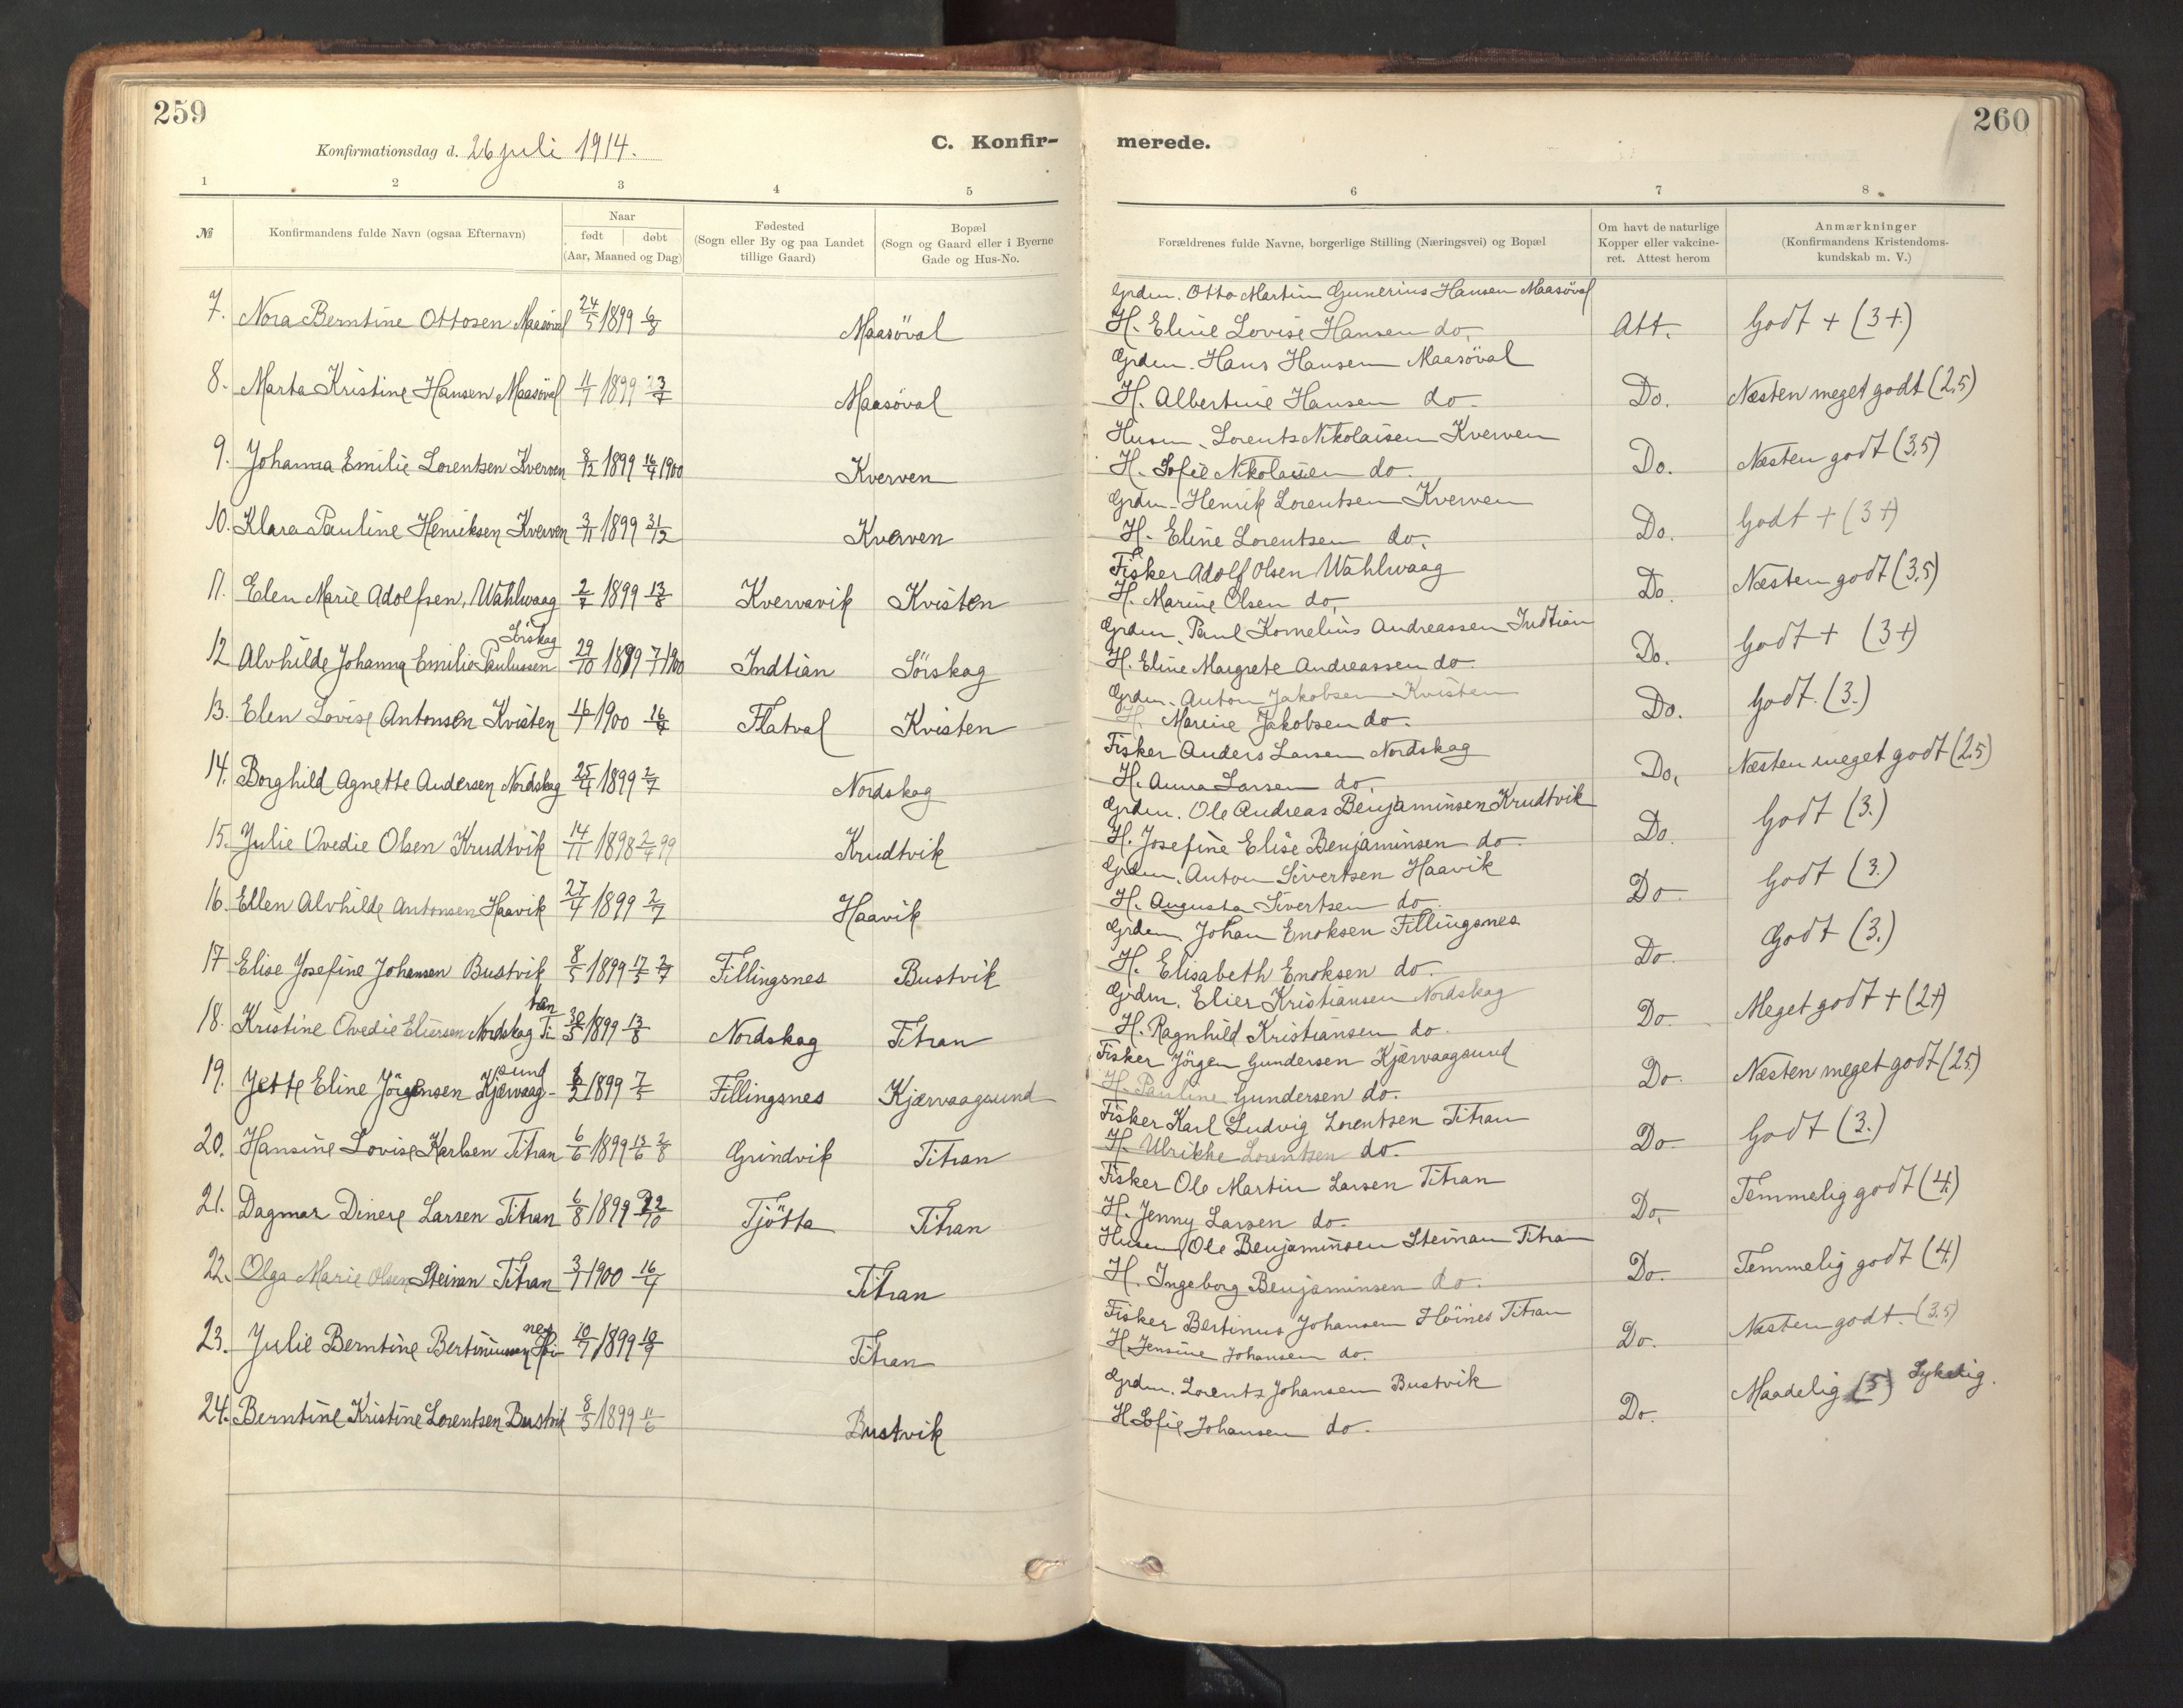 259
Konfirmationsdag d. 26 juli 1914.
C. Konfir-
1 2 3 4 5
№
Konfirmandens fulde Navn (ogsaa Efternavn)
Naar
født | døbt
(Aar, Maaned og Dag)
Fødested
(Sogn eller By og paa Landet
tillige Gaard)
Bopæl
(Sogn og Gaard eller i Byerne
Gade og Hus-No.
7. Nora Berntine Ottosen Maasöval 24/5 1899 6/8 Maasöval
8. Marta Kristine Hansen Maasöval 1899 Maasöval
9. Johanna Emilie Lorentsen Kverven 8/12 1899 16/4 1900 Kverven
10. Klara Pauline Henriksen Kverven 3/11 1899 31/12 Kverven
11. Elen Marie Adolfsen, Wåhlvaag 2/7 1899 13/8 Kvervavik Kvisten
Sörskag
12 Alvhilde Johanna Emilie Paulussen 29/10 1899 7/1 1900 Indtian Sörskag
13. Elen Lovise Antonsen Kvisten 16/1 1900 16/4 Flatval Kvisten
14. Borghild Agnette Andersen Nordskag 25/4 1899 2/7 Nordskag
15. Julie Ovedie Olsen Krudtvik 14/11 1898 2/4 99 Krudtvik
16. Ellen Alvhilde Antonsen Haavik 27/4 1899 2/7 Haavik
17 Elise Josefine Johansen Bustvik 8/5 1899 17/5 2/7 Fillingsnes Bustvik
tran
18. Kristine Ovedie Eliersen Nordskag Ti 30/5 1899 13/8 Nordskag Titran
sund
19. Jette Eline Jörgensen Kjærvaag- 1899 7/5 Fillingsnes Kjærvaagsund
20. Hansine Lovise Karlsen Titran 6/6 1899 13/6 2/8 Grindvik Titran
21. Dagmar Dinere Larsen Titran 6/8 1899 22/10 Tjötta Titran
22. Olga Marie Olsen Steinan Titran 3/1 1900 16/4 Titran
nes
23. Julie Berntine Bertinussen Höi- 10/7 1899 10/9 Titran
24. Berntine Kristine Lorentsen Bustvik 8/5 1899 11/6 Bustvik
260
merede.
6 7 8
Forældrenes fulde Navne, borgerlige Stilling (Næringsvei) og Bopæl
Om havt de naturlige
Kopper eller vakcine-
ret. Attest herom
Anmærkninger
(Konfirmandens Kristendoms-
kundskab m. V.)
Grdm. Otto Martin Gunerius Hansen Maasöval
H. Eline Lovise Hansen do. Att. Godt + (3+)
Grdm. Hans Hansen Maasöval
H. Albertine Hansen do. Do. Næsten meget godt (2,5)
Husm. Lorents Nikolaisen Kverven
H. Sofie Nikolaisen do. Do. Næsten godt (3,5)
Grdm. Henrik Lorentsen Kverven
H. Eline Lorentsen do. Do. Godt + (3+)
Fisker Adolf Olsen Wåhlvaag
H. Marine Olsen do. Do. Næsten godt (3,5)
Grdm. Paul Kornelius Andreassen Indtian
H. Eline Margrete Andreassen do. Do. Godt + (3+)
Grdm. Anton Jakobsen Kvisten
H. Marine Jakobsen do. Do. Godt. (3.)
Fisker Anders Larsen Nordskag
H. Anna Larsen do. Do. Næsten meget godt (2,5)
Grdm. Ole Andreas Benjaminsen Krudtvik
H. Josefine Elise Benjaminsen do. Do. Godt (3.)
Grdm. Anton Sivertsen Haavik
H. Augusta Sivertsen do. Do. Godt (3.)
Grdm. Johan Enoksen Fillingsnes
H. Elisabeth Enoksen do. Do. Godt (3.)
Grdm. Elier Kristiansen Nordskag
H. Ragnhild Kristiansen do. Do. Meget godt + (2+)
Fisker Jörgen Gundersen Kjærvaagsund
H. Pauline Gundersen do. Do. Næsten meget godt (2,5)
Fisker Karl Ludvig Lorentsen Titran
H. Ulrikke Lorentsen do. Do. Godt (3.)
Fisker Ole Martin Larsen Titran
H. Jenny Larsen do. Do. Temmelig godt (4.)
Husm. Ole Benjaminsen Steinan Titran
H. Ingeborg Benjaminsen do. Do. Temmelig godt (4.)
Fisker Bertinus Johansen Höines Titran
H. Jensine Johansen do. Do. Næsten godt. (3.5)
Grdm. Lorents Johansen Bustvik
H. Sofie Johansen do. Do. Maadelig (5) Sykelig.